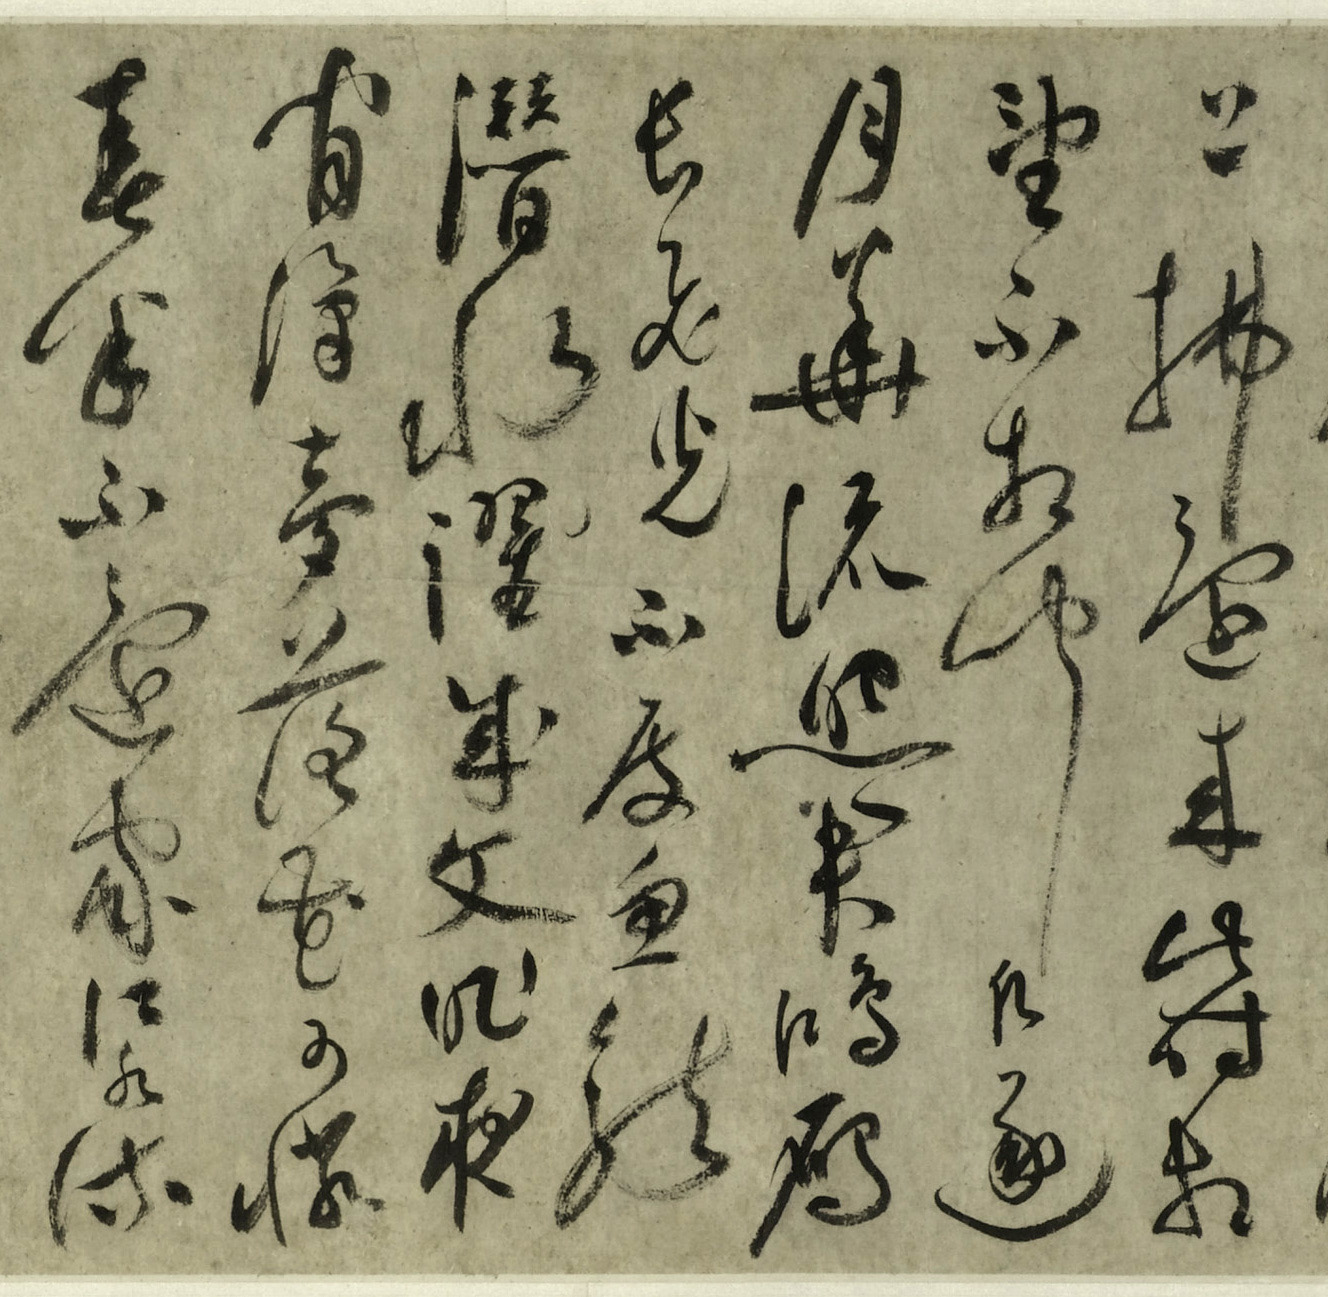 上拂還來此時相
望不相聞願逐
月華流照君鴻雁
長飛光不度魚龍
潛水躍成文昨夜
閒潭夢落花可憐
春半不還家江水流